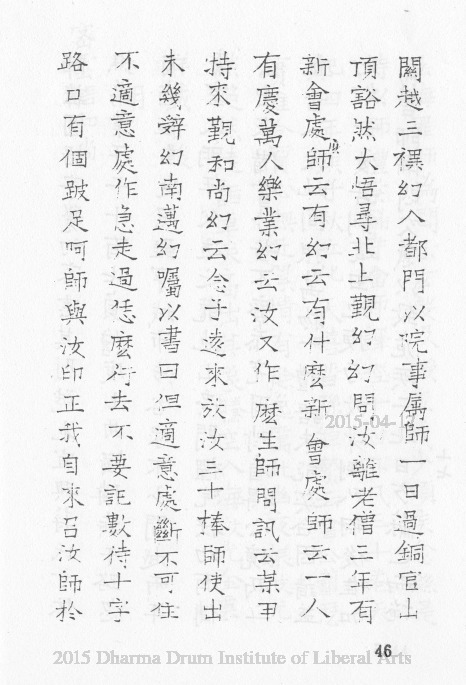 關越三禩幻入都門以院事属師一日過銅官山
頂豁然大悟尋北上覲幻幻問汝離老僧三年有
新會處師云有幻云有什麼新會處師云一人
有慶萬人樂業幻云汝又作麼生師問訊云某甲
特來覲和尚幻云念子遠來放汝三十棒師使出
未幾辭幻南邁幻囑以書曰但適意處斷不可住
不適意處作急走過恁麼行去不要記數待十字
路口有個跛足呵師與汝印正我自來召汝師於
2015-04-1
46
2015 Dharma Drum Institute of Liberal Arts